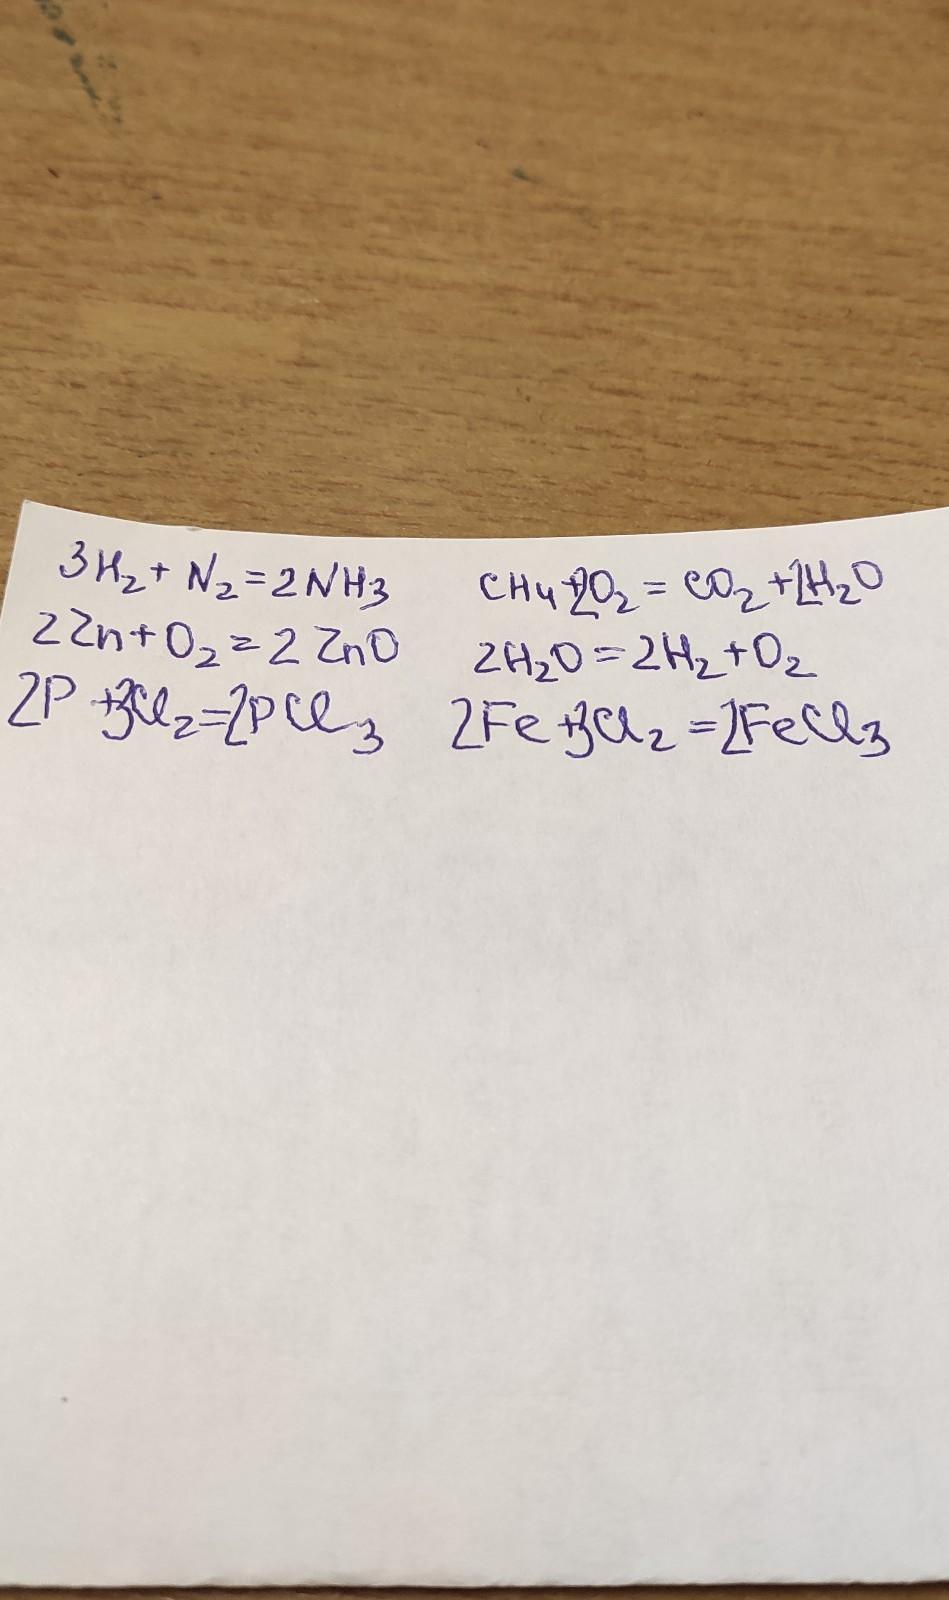 3H₂ + N₂ = 2NH₃ CH₄ + 2O₂ = CO₂ + 2H₂O
2Zn + O₂ = 2ZnO 2H₂O = 2H₂ + O₂
2P + 3Cl₂ = 2PCl₃ 2Fe + 3Cl₂ = 2FeCl₃